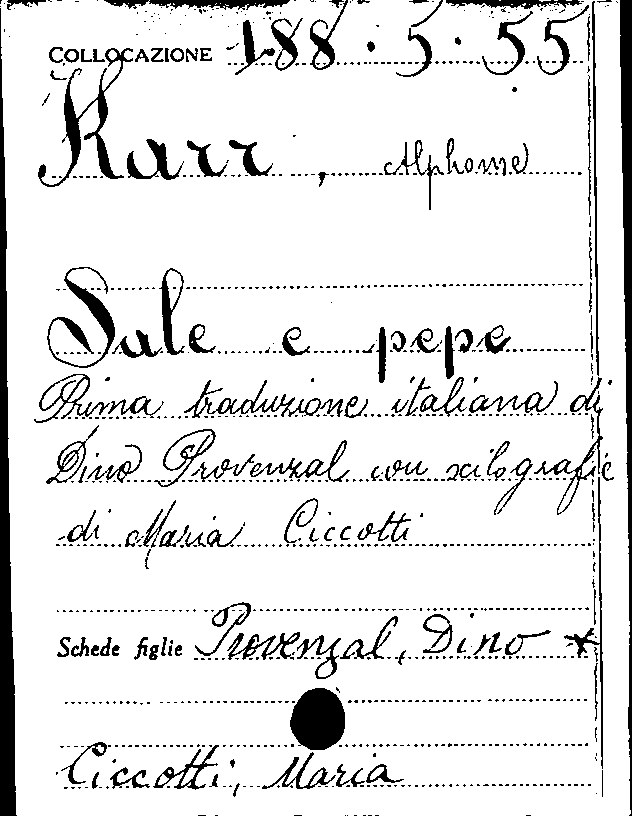 COLLOCAZIONE 188.5.55
Karr, Alphonse
Sale e pepe
Prima traduzione italiana di
Dino Provenzal con xilografie
di Maria Ciccotti
Schede figlie Provenzal, Dino *
Ciccotti, Maria